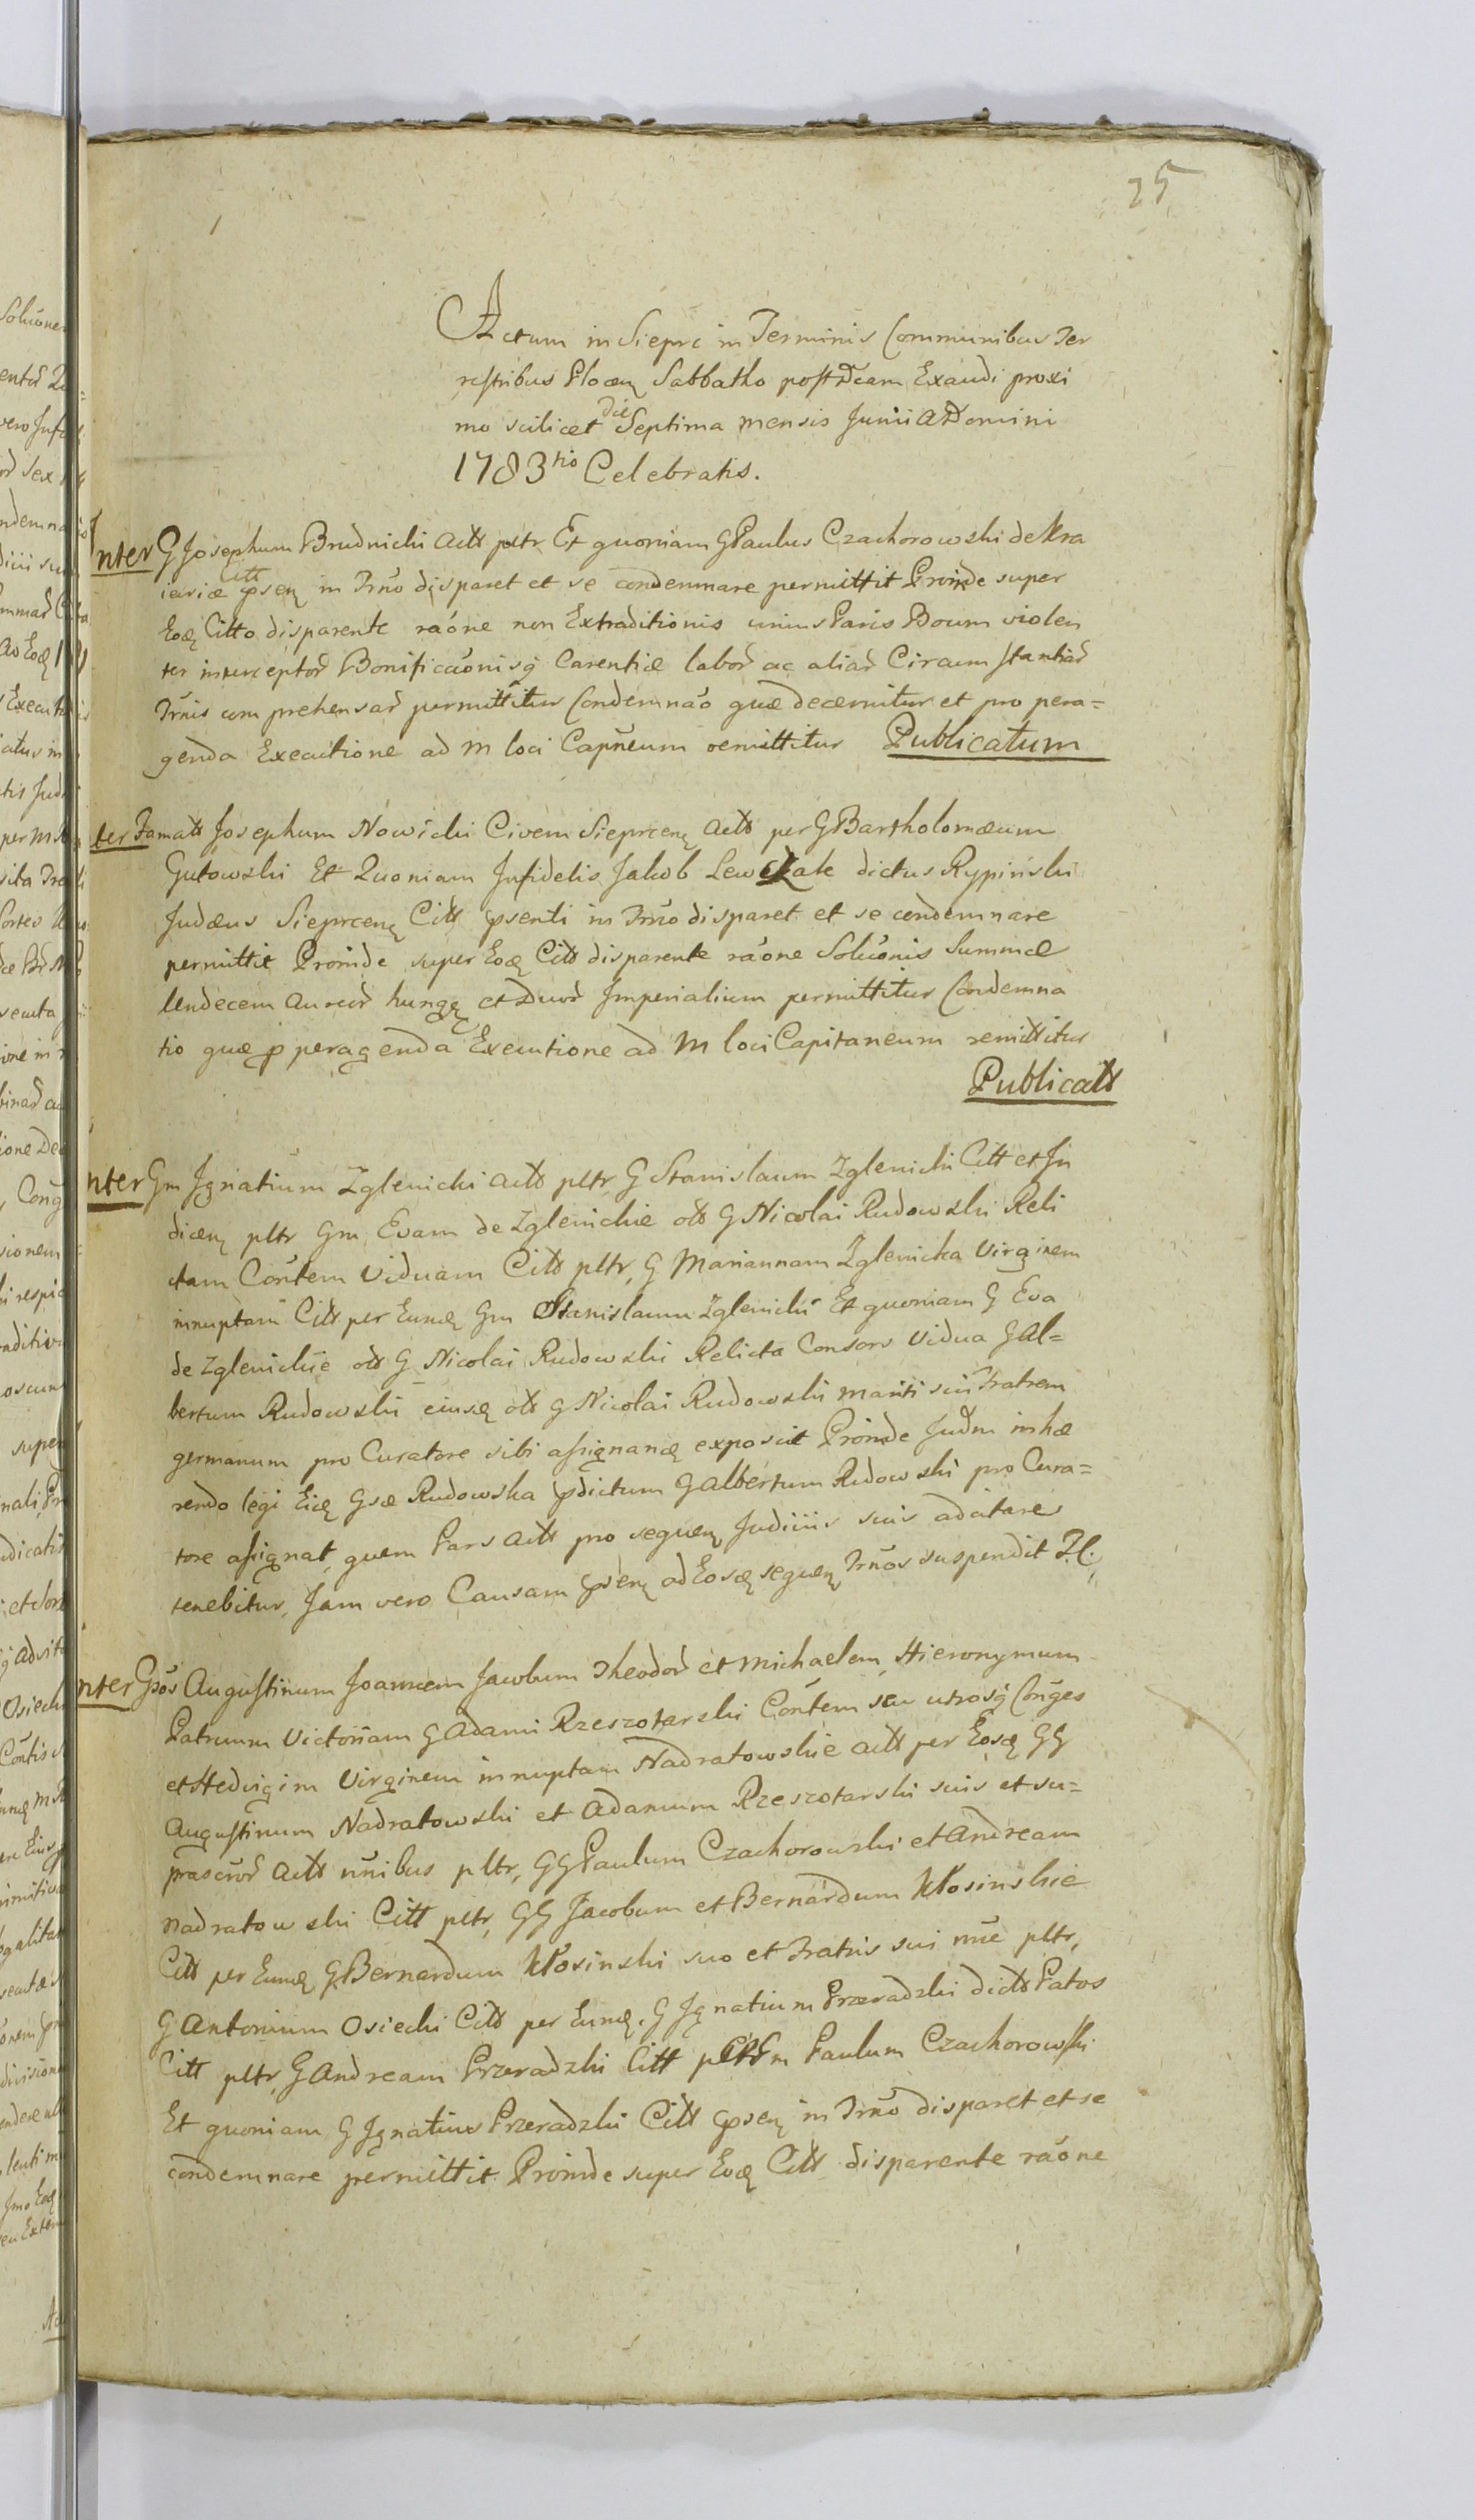 25
Actum in Sieprc in Terminis Communibus Ter
restribus Plocen Sabbatho post Dcam Exaudi proxi
mo scilicet die Septima mensis Junii A Domini
1783tio Celebratis.
Inter G Josephum Brudnicki Actt pltr Et quoniam G Paulus Czachorowski de Kra
iewiæ Citt psen in Trno disparet et se condemnare permittit Proinde super
Eoq Citto disparente raone non Extraditionis unius Paris Boum violen
ter interceptor Bonificaonisq Carentiæ labor ac aliar Circum stantiar
Trnis comprehensar permittitur Condemnao quæ decernitur et pro pera=
genda Executione ad M loci Capneum remittitur Publicatum
ter Famatt Josephum Nowicki Civem Sieprcen Actt per G Bartholomæum
Gutowski Et Quoniam Infidelis Jakob Lewek ate dictus Rypiński
Judæus Sieprcen Citt psenti in Trno disparet et se condemnare
permittit Proinde super Eoq Citt disparente raone Soluonis Summæ
Undecem Aureor hungq et Duor Imperialium permittitur Condemna
tio quæ p peragenda Executione ad M loci Capitaneum remittitur
Publicatt
nter Gm Ignatium Zglenicki Actt pltr G Stanislaum Zglenicki Citt et In
dicen pltr Gm Evam de Zglenickie ott G Nicolai Rudowski Reli
ctam Contem Viduam Citt pltr, G Mariannam Zglenicka Virginem
innuptam Citt per Eumq Gm Stanislaum Zglenicki Et quoniam G Eva
de Zglenickie ott G Nicolai Rudowski Relicta Consors Vidua G Al=
bertum Rudowski eiusq ott G Nicolai Rudowski mariti sui Fratrem
germanum pro Curatore sibi assignanq exposcit Proinde Judm inhæ
rendo legi Eiq Gsæ Rudowska pdictum G Albertum Rudowski pro Cura=
tore assignat, quem Pars Actt pro sequen Judiiis suis adcitare
tenebitur, Jam vero Causam psen ad Eosq sequen Trnos suspendit Pl.
nter Gsos Augustinum Joannem Jacobum Theodor et Michaelem, Hieronymum
Patruum Victoriam G Adami Rzeszotarski Contem seu utrosq Conges
et Hedvigim Virginem innuptam Nadratowskie Actt per Eosq GG
Augustinum Nadratowski et Adamum Rzeszotarski suis et su=
prascror Actt nnibus pltr, GG Paulum Czachorowski et Andream
Nadratowski Citt pltr, GG Jacobum et Bernardum Kłosinskie
Citt per Eumq G Bernardum Kłosinski suo et Fratris sui nne pltr,
G Antonium Osiecki Citt per Eumq. G Ignatium Przeradzki dictt Patos
Citt pltr, G Andream Przeradzki Citt per Gm Paulum Czachorowski
Et quoniam G Ignatius Przeradzki Citt psen in Trno disparet et se
condemnare permittit Proinde super Eoq Citt disparente raone